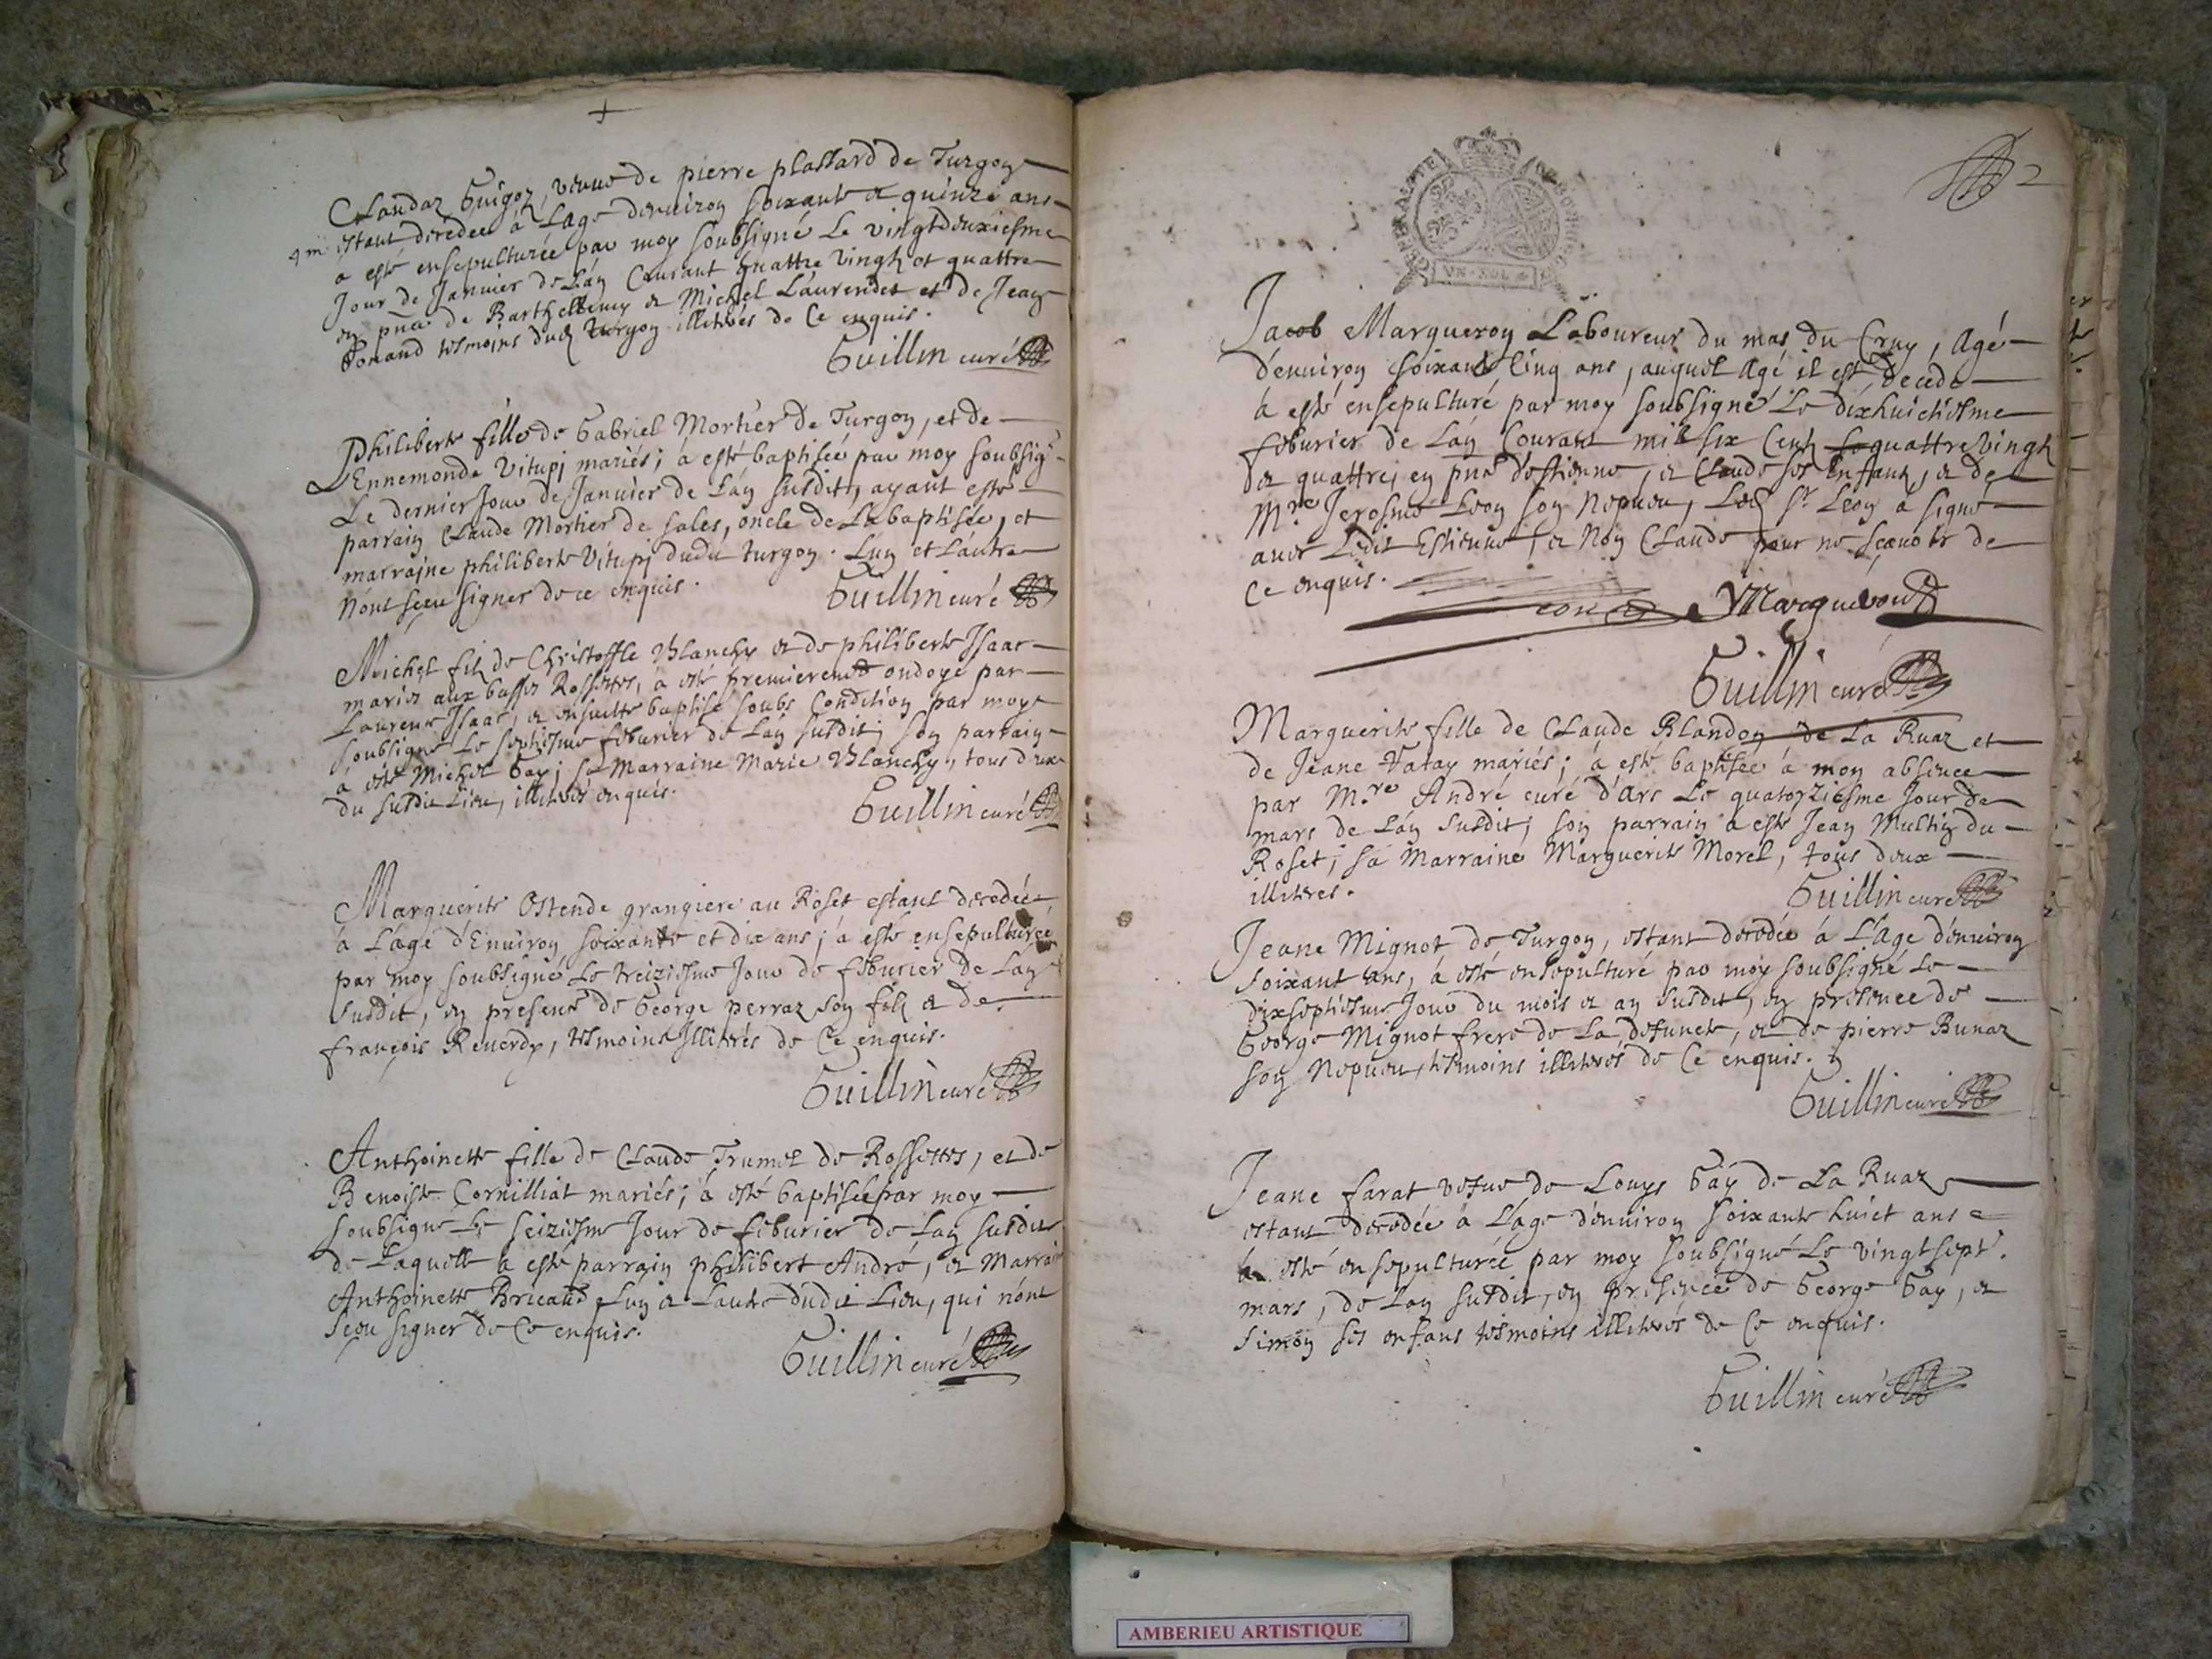 Claudaz Guigoz, veuve de pierre plastard de Turgon
estant decedee à L'age denviron soixante et quinze ans
a esté ensepulturée par moy soubsigné Le vingtdeuxiesme
Jour de Janvier de L'an Courant quattre vingtz et quattre
en pnce de Barthellemy et Michel Laurendet et de Jean
tesmoins dud Turgon illiterés de Ce enquis.
Guillin curé
Philiberte fille de Gabriel Mortier de Turgon, et de
Ennemonde Vitupj mariés; à esté baptisée par moy soubsigé
Le dernier Jour de Janvier de L'an susdit, ayant esté
parrain Claude Mortier de sales, oncle de La baptisée, et
marraine philiberte Vitupj dudit Turgon. L'un et L'autre
n'ont sceu signer de ce enquis.
Guillin curé
Michel filz de Christoffle Blanchy et de philiberte Isaac
mariés aux basses Rossettes, à esté premierement ondoyé par
Laurent Isaac, et ensuitte baptisé soubs Condition par moy
soubsigné Le septiesme feburier de L'an susdit; son parrain
à esté Michel Gay; sa Marraine Marie Blanchy, tous deux
du susdit Lieu, illiterés enquis.
Guillin curé
Marguerite Ostende grangiere au Roset estant decedée
à L'agé d'Enuiron soixante et dix ans; a esté ensepulturée
par moy soubsigné Le treiziesme Jour de feburier de L'an
susdit, en presence de George perraz son filz et de
françois Reverdy, tesmoins Illiterés de Ce enquis.
Guillin curé
Anthoinette fille de Claude Trumel de Rossettes, et de
Benoiste Cornilliat mariés; à esté baptisée par moy
soubsigné Le seiziesme Jour de feburier de L'an susdit
de Laquelle à esté parrain philibert André, et Marrai
Anthoinette Bricaud L'un et L'autre dudit Lieu, qui n'ont
sceu signer de Ce enquis.
Guillin curé
2
GENERALITE DE BOURGOGNE
VN·SOL
Jacob Margueron Laboureur du mas du Cruy, Agé
d'enuiron soixante Cinq ans, auquel Agé il est decede
à esté ensepulturé par moy soubsigné Le dixhuictiesme
feburier de L'an Courant mil six Centz quattre vingtz
et quattre; en pnce d'Estienne, et Claude ses Enffantz, et de
Mre Jerosme Leon son Nepueu, Led Sr Leon a signé
avec Ledit Estienne, et Non Claude pour ne sçavoir de
Ce enquis.
Leon Margueron
Guillin curé
Marguerite fille de Claude Blandon de La Ruaz et
de Jeane Vatay mariés; à esté baptisée à mon absence
par M.re André curé d'Ars Le quatorziesme Jour de
mars de L'an susdit; son parrain a esté Jean Multin du
Roset; sa Marraine Marguerite Morel, tous deux
illiteres.
Guillin curé
Jeane Mignot de Turgon, estant decedée à L'Age d'enuiron
soixant ans, à esté ensepulturé par moy soubsigné Le
dixseptiesme Jour du mois et an susdit, en presence de
George Mignot frere de La defuncte, et de pierre Bunaz
son Nepueu, tesmoins illiterés de Ce enquis.
Guillin curé
Jeane farat vefue de Louys Gay de La Ruaz
estant decedée à L'age d'enuiron soixante huict ans
à esté ensepulturée par moy soubsigné Le vingtsept.
mars, de L'an susdit, en presence de George Gay, et
Simon ses enfans tesmoins illiterés de Ce enquis.
Guillin curé
AMBERIEU ARTISTIQUE